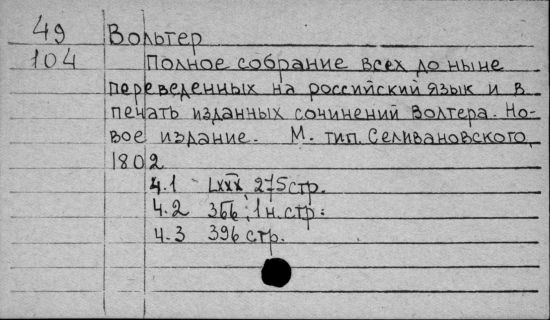 49 Вольтер
104 Полное собрание всех до ныне
переведенных на российский язык и в
печать изданных сочинений Волтера. Но-
вое издание. М. тип. Селивановского,
1802
ч.1 LXXX, 275 стр.
ч.2 366; 1 н. стр.
ч.3 396 стр.